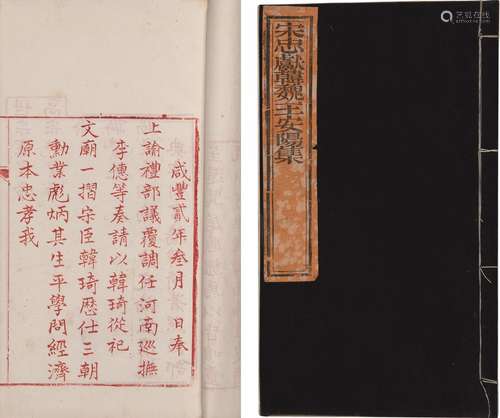 咸豐貳年叁月 日奉
上諭禮部議覆調任河南巡撫
李僡等奏請以韓琦從祀
文廟一摺宋臣韓琦歷仕三朝
勳業彪炳其生平學問經濟
原本忠孝我
宋忠獻韓魏王安陽集
艺狐在线
artfoxlive.com